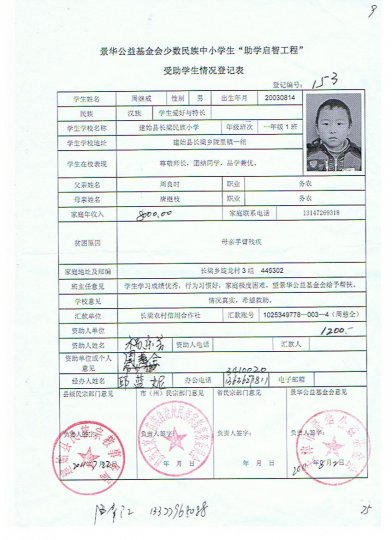 9
景华公益基金会少数民族中小学生“助学启智工程”
受助学生情况登记表
登记编号: 153
学生姓名 周继威 性别 男 出生年月 20030814
民族 汉族 学生爱好与特长
学生学校名称 建始县长梁民族小学 年级班次 一年级1班
学生学校地址 建始县长梁乡陇里镇一组
学生在校表现 尊敬师长,团结同学,品学兼优。
父亲姓名 周良时 职业 务农
母亲姓名 唐继枝 职业 务农
家庭年收入 800.00 家庭联系电话 13147269318
贫困原因 母亲手臂残疾
家庭地址及邮编 长梁乡陇龙村3组 445302
班主任意见 学生学习成绩优秀,行为习惯好,家庭极度困难,望景华公益基金会给予帮扶。
学校意见 情况真实,希望救助。
汇款单位 长梁农村信用合作社 汇款账号 1025349778-003-4(周慈全)
资助人单位 1200.-
资助人姓名 资助人电话 汇款人
资助单位或个人
意见
经办人姓名 办公电话 3410020 电子邮箱
县级民宗部门意见 市(州)民宗部门意见 省民宗部门意见 景华公益基金会意见
负责人签字: 负责人签字: 负责人签字: 负责人签字:
年 月 日 年 月 日
25